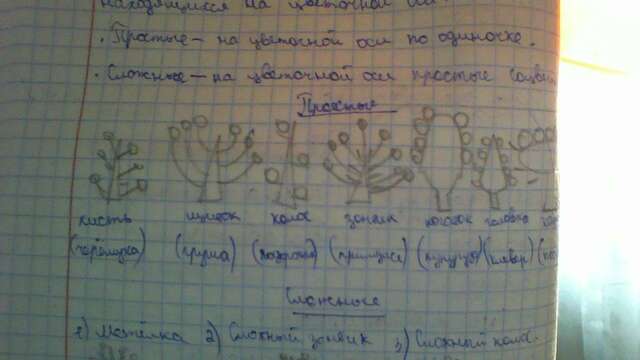 находящиеся на цветочной оси.
· Простые – на цветочной оси по одиночке.
· Сложные – на цветочной оси простые соцвет
Простые
кисть щиток колос зонтик початок головка
(черёмуха) (груша) (примула) (кукуруза) (клевер)
Сложные
1) Метёлка 2) Сложный зонтик 3) Сложный колос